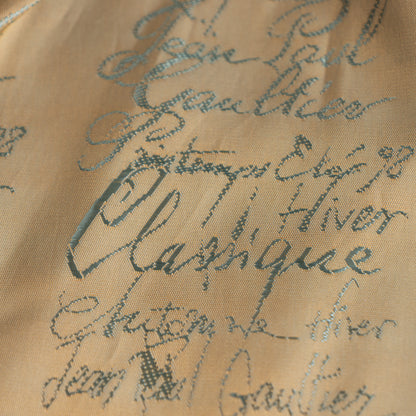 Jean Paul
Gaultier
Printemps Eté 98
Hiver
Classique
Automne Hiver
Jean Paul Gaultier